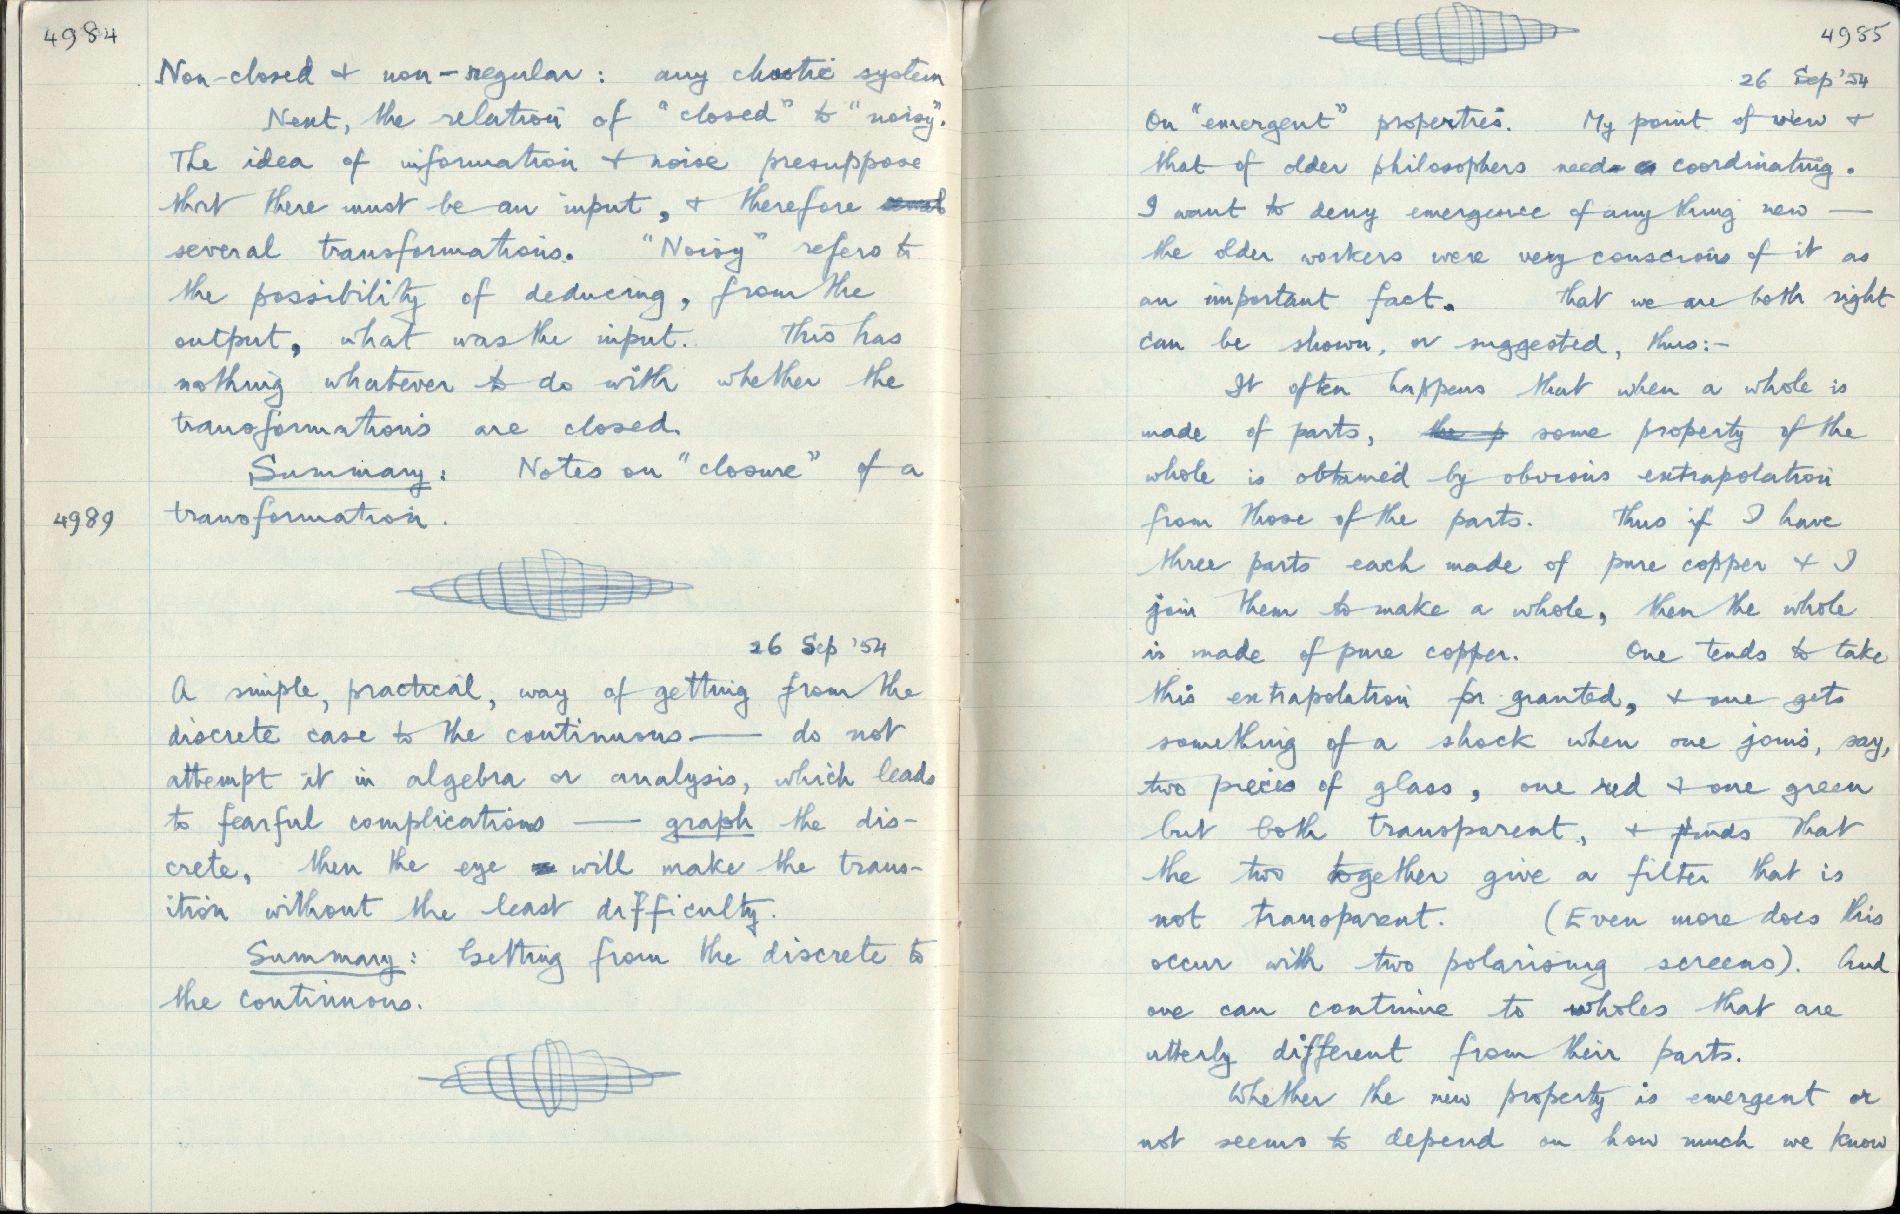 4984
Non-closed & non-regular: any chaotic system
Next, the relation of "closed" to "noisy".
The idea of information & noise presuppose
that there must be an input, & therefore
several transformations. "Noisy" refers to
the possibility of deducing, from the
output, what was the input. This has
nothing whatever to do with whether the
transformations are closed.
Summary: Notes on "closure" of a
4989 transformation.
26 Sep '54
A simple, practical, way of getting from the
discrete case to the continuous — do not
attempt it in algebra or analysis, which leads
to fearful complications — graph the dis-
crete, then the eye will make the trans-
ition without the least difficulty.
Summary: Getting from the discrete to
the continuous.
4985
26 Sep '54
On "emergent" properties. My point of view &
that of older philosophers needs coordinating.
I want to deny emergence of anything new —
the older workers were very conscious of it as
an important fact. That we are both right
can be shown, or suggested, thus:-
It often happens that when a whole is
made of parts, the p some property of the
whole is obtained by obvious extrapolation
from those of the parts. Thus if I have
three parts each made of pure copper & I
join them to make a whole, then the whole
is made of pure copper. One tends to take
this extrapolation for granted, & one gets
something of a shock when one joins, say,
two pieces of glass, one red & one green
but both transparent, & finds that
the two together give a filter that is
not transparent. (Even more does this
occur with two polarising screens). And
one can continue to wholes that are
utterly different from their parts.
Whether the new property is emergent or
not seems to depend on how much we know